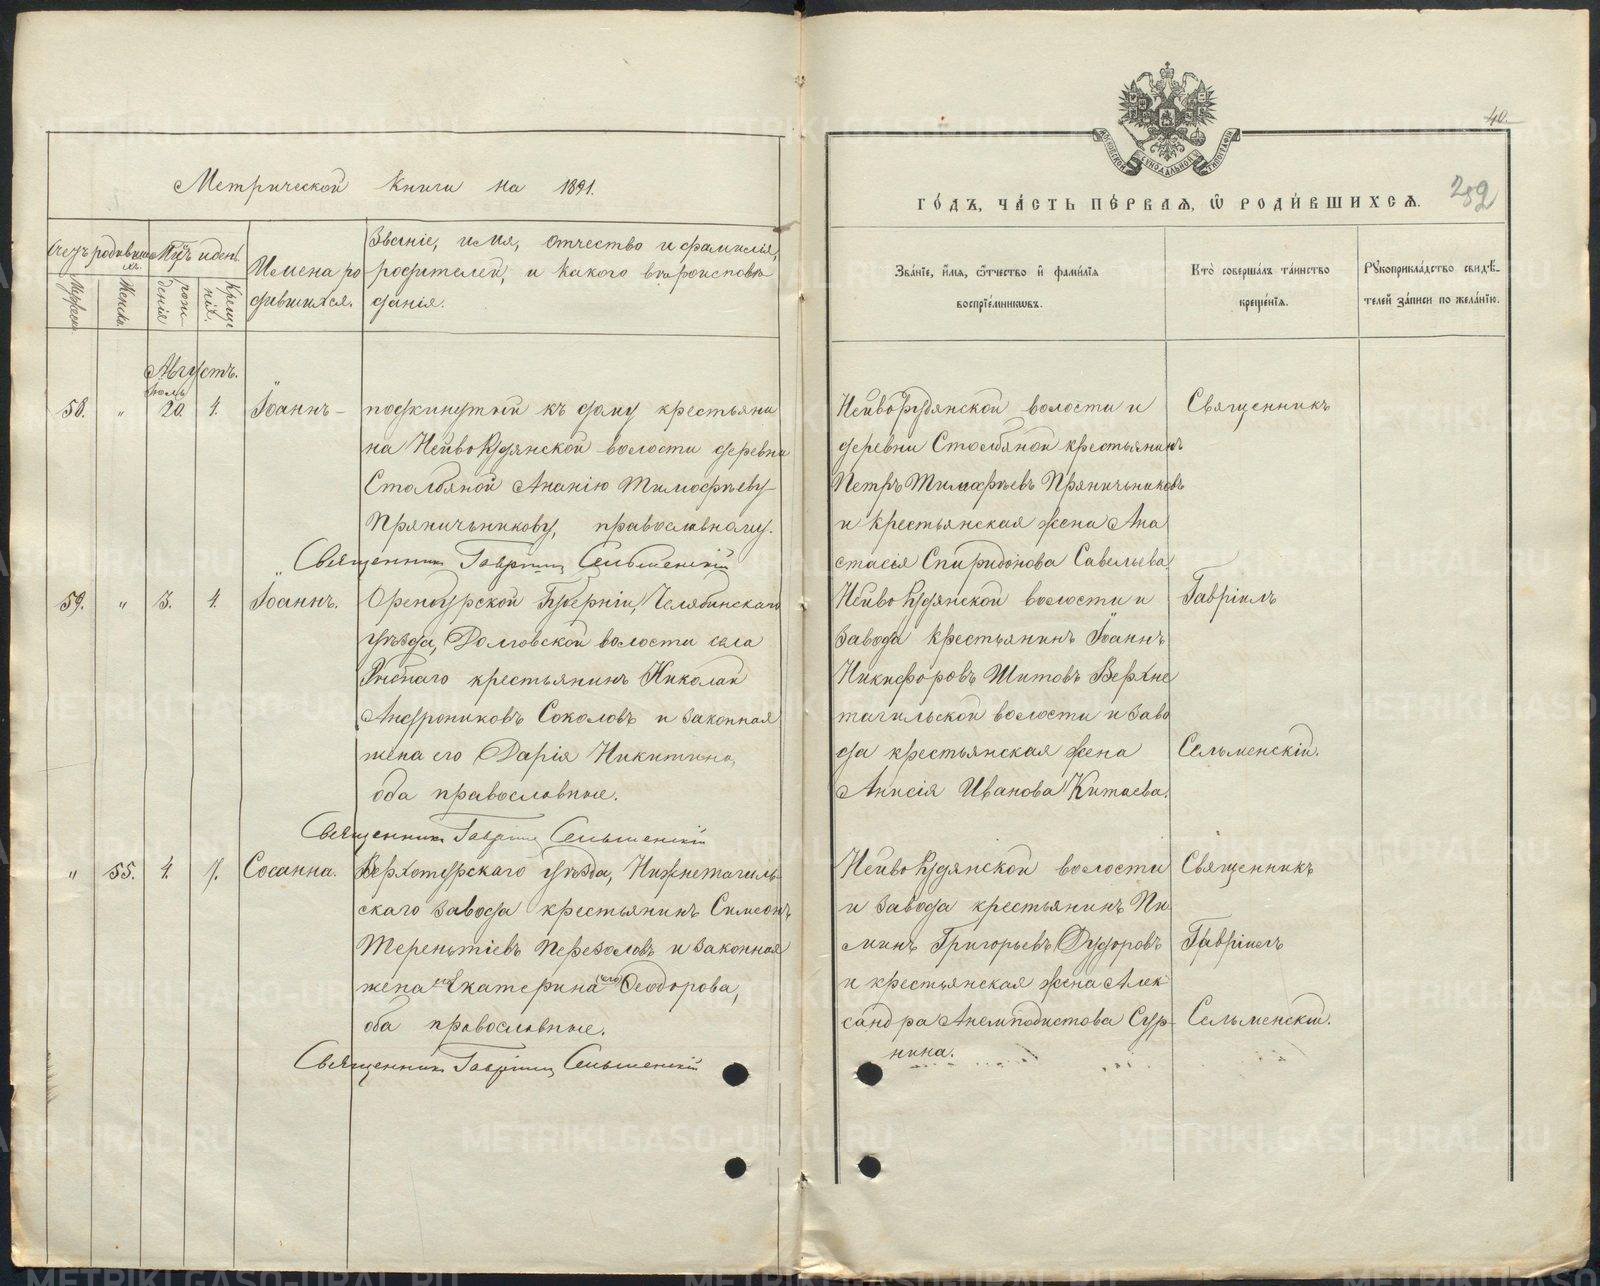 40.
282
МОСКОВСКОЙ СѴНОДАЛЬНОЙ ТИПОГРАФІИ
Метрической книги на 1891.
ГО́ДЪ, ЧА́СТЬ ПЕ́РВАЯ, Ѡ҆ РОДИ́ВШИХСЯ.
Счетъ родившихъ
Мѣс. и день
Мужеск.
Женск.
рожденія
Крещенія.
Имена ро
дившихся.
Званіе, имя, отчество и фамилія,
родителей, и какого вѣроисповѣ
данія.
Зва́нїе, и҆́мя, ѻ҆́тчество и҆ фами́лїя
воспрїе́мникѡвъ.
Кто̀ соверша́лъ та́инство
креще́нїя.
Рꙋкоприкла́дство свидѣ́-
телей за́писи по жела́нїю.
Августъ.
Іюль
58. " 20 4. Іоаннъ –
подкинутый къ дому крестьяни
на НейвоРудянской волости деревни
Столбяной Ананію Тимофѣеву
Пряничникову, православному.
Священникъ Гавріилъ Сельменскій
Нейворудянской волости и
деревни Столбяной крестьянинъ
Петръ Тимофѣевъ Пряничниковъ
и крестьянская жена Ана
стасія Спиридонова Савельева.
Священникъ
59. " 3. 4. Іоаннъ.
Оренбурской Губерніи, Челябинскаго
уѣзда, Долговской волости села
крестьянинъ Николай
Андрониковъ Соколовъ и законная
жена его Дарія Никитина,
оба православные.
Священникъ Гавріилъ Сельменскій
НейвоРудянской волости и
завода крестьянинъ Іоаннъ
Никифоровъ Шитовъ Верхне
тагильской волости и заво
да крестьянская жена
Анисія Иванова Китаева.
Гавріилъ
Сельменскій.
" 55. 4. 7. Сосанна.
Верхотурскаго уѣзда, Нижнетагиль-
скаго завода крестьянинъ Симеонъ
Терентіевъ Перезоловъ и законная
жена его Екатерина Ѳеодорова,
оба православные.
Священникъ Гавріилъ Сельменскій
НейвоРудянской волости
и завода крестьянинъ Пи
минъ Григорьевъ Дудоровъ
и крестьянская жена Алек
сандра Анемподистова Сур-
нина.
Священникъ
Гавріилъ
Сельменскій.
METRIKI.GASO-URAL.RU